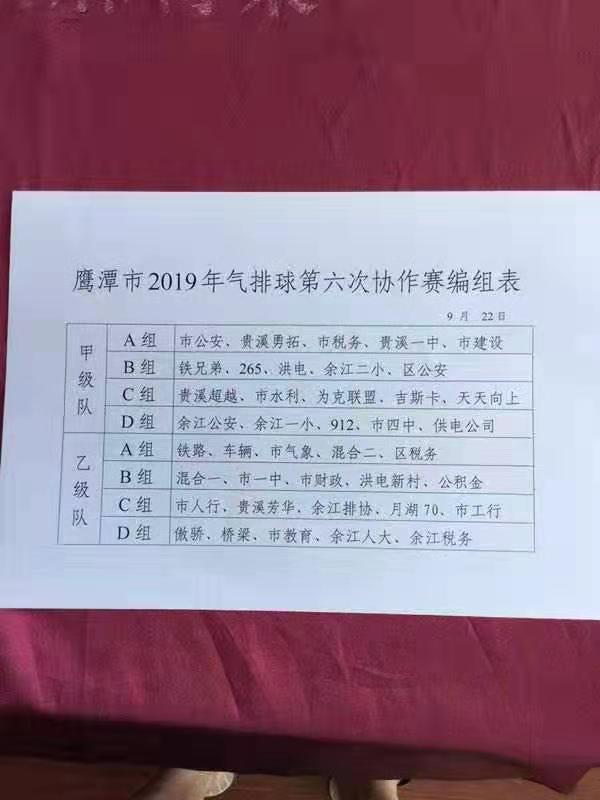 鹰潭市2019年气排球第六次协作赛编组表
9 月 22日
甲级队
A 组 市公安、贵溪勇拓、市税务、贵溪一中、市建设
B 组 铁兄弟、265、洪电、余江二小、区公安
C 组 贵溪超越、市水利、为克联盟、吉斯卡、天天向上
D 组 余江公安、余江一小、912、市四中、供电公司
乙级队
A 组 铁路、车辆、市气象、混合二、区税务
B 组 混合一、市一中、市财政、洪电新村、公积金
C 组 市人行、贵溪芳华、余江排协、月湖 70、市工行
D 组 傲骄、桥梁、市教育、余江人大、余江税务